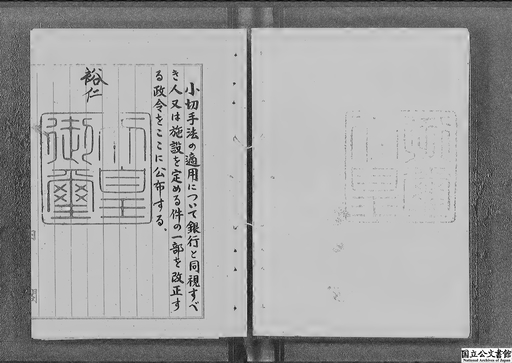 小切手法の適用について銀行と同視すべ
き人又は施設を定める件の一部を改正す
る政令をここに公布する。
裕仁
天皇
御璽
国立公文書館
National Archives of Japan